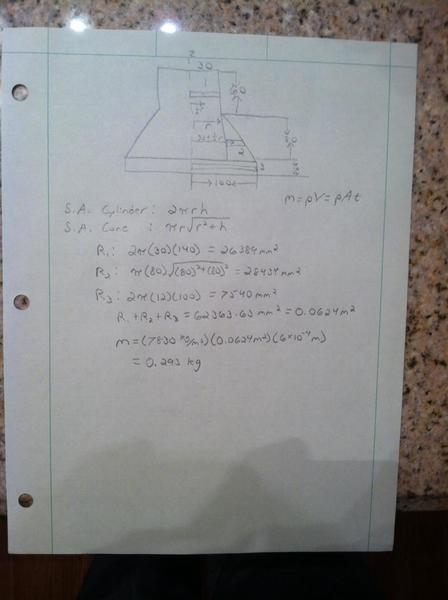 z
30
1
r
m=ρV=ρAt
S.A. Cylinder: 2πrh
S.A. Cone : πr√r²+h
R₁: 2π(30)(140) = 26389mm²
R₂: π(80)√(80)²+(80)² = 28434mm²
R₃: 2π(12)(100) = 7540mm²
R₁+R₂+R₃ = 62363.63 mm² = 0.0624m²
m = (7830 kg/m³)(0.0624m²)(6×10⁻⁴m)
= 0.293 kg